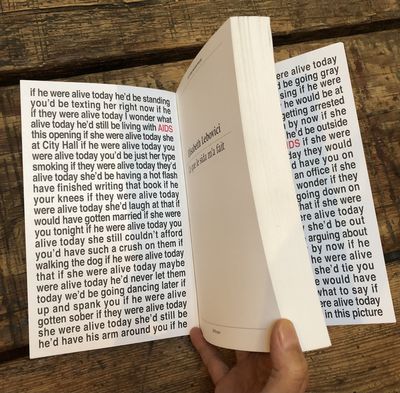 if he were alive today he'd be standing
you'd be texting her right now if he
if they were alive today I wonder what
alive today he'd still be living with AIDS
this opening if she were alive today she
at City Hall if he were alive today you
were alive today you'd be just her type
smoking if they were alive today they'd
alive today she'd be having a hot flash
have finished writing that book if he
your knees if they were alive today you
were alive today she'd laugh at that if
would have gotten married if she were
you tonight if he were alive today you
alive today she still couldn't afford
you'd have such a crush on them if
walking the dog if he were alive today
that if she were alive today maybe
were alive today he'd never let them
today we'd be going dancing later if
up and spank you if he were alive
gotten sober if they were alive today
were alive today she'd still be
he'd have his arm around you if he
Élisabeth Lebovici
Ce que le sida m'a fait
ere alive today
d be going gray
sing if he were
he would be at
getting arrested
by now if she
he'd be outside
DS if she were
day they would
d have you on
an office if she
wonder if they
going down on
hat if she were
alive today
she'd be out
arguing about
by now if he
were alive
she'd tie you
would have
what to say if
ere alive today
in this picture